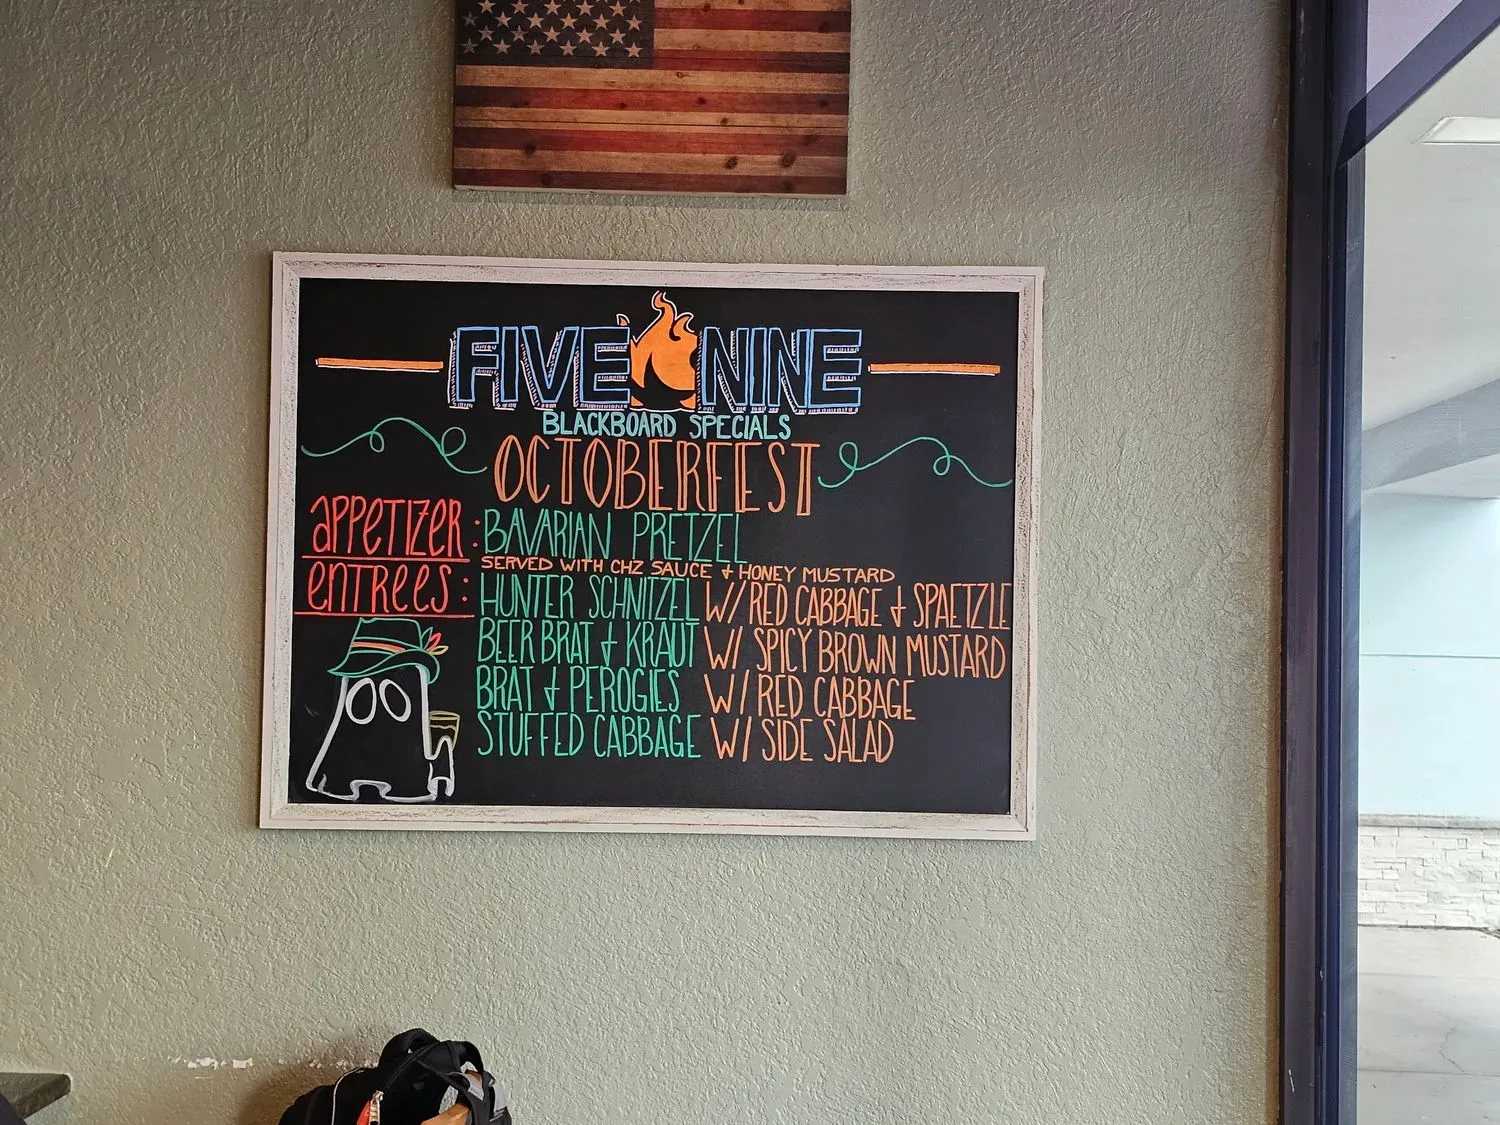 FIVE NINE
BLACKBOARD SPECIALS
OCTOBERFEST
APPETIZER: BAVARIAN PRETZEL
SERVED WITH CHZ SAUCE & HONEY MUSTARD
ENTREES: HUNTER SCHNITZEL W/ RED CABBAGE & SPAETZLE
BEER BRAT & KRAUT W/ SPICY BROWN MUSTARD
BRAT & PEROGIES W/ RED CABBAGE
STUFFED CABBAGE W/ SIDE SALAD